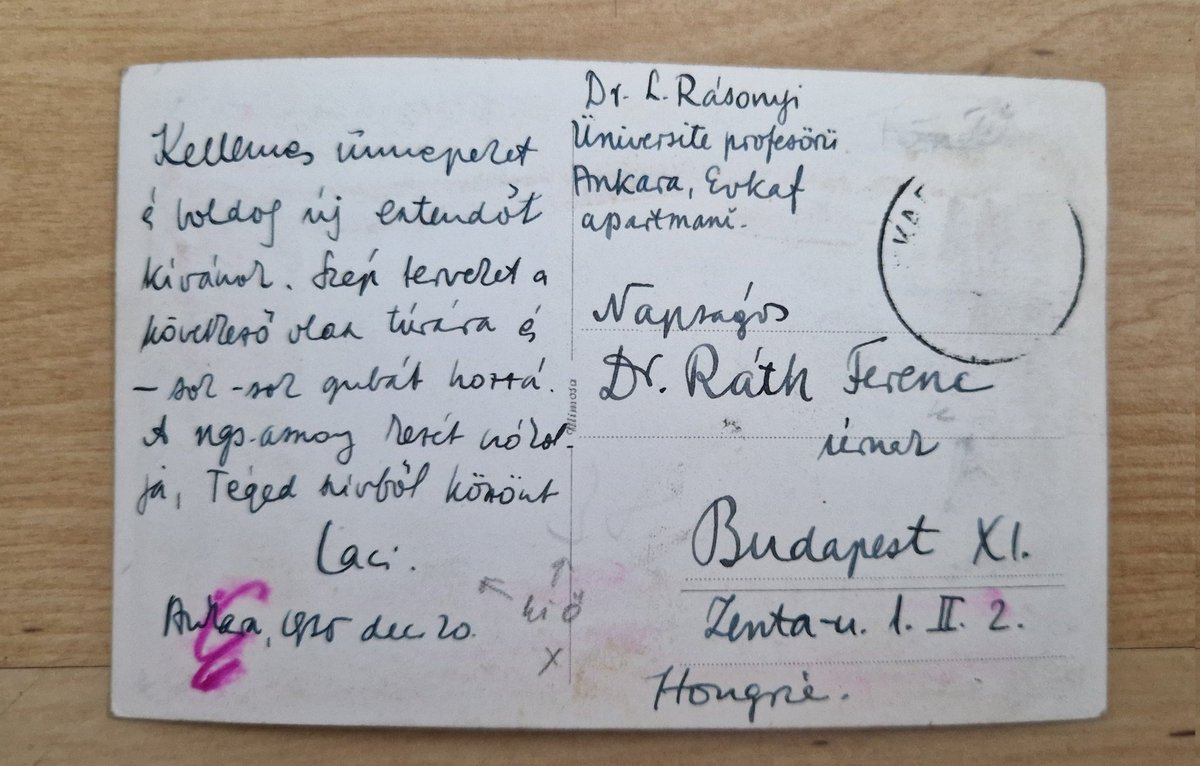 Kellemes ünnepeket
é boldog új esztendőt
kívánok. Szép terveket a
következő olasz túrára és
– sok - sok gubát hozzá.
A ngs. asszony kezét csókol-
ja, Téged szívből köszönt
Laci.
Ankara, 1935 dec 20.
ki ő
x
Mimosa
Dr. L. Rásonyi
Üniversite profesörü
Ankara, Evkaf
apartmanı.
Nagyságos
Dr. Ráth Ferenc
úrnak
Budapest XI.
Zenta-u. 1. II. 2.
Hongrie.